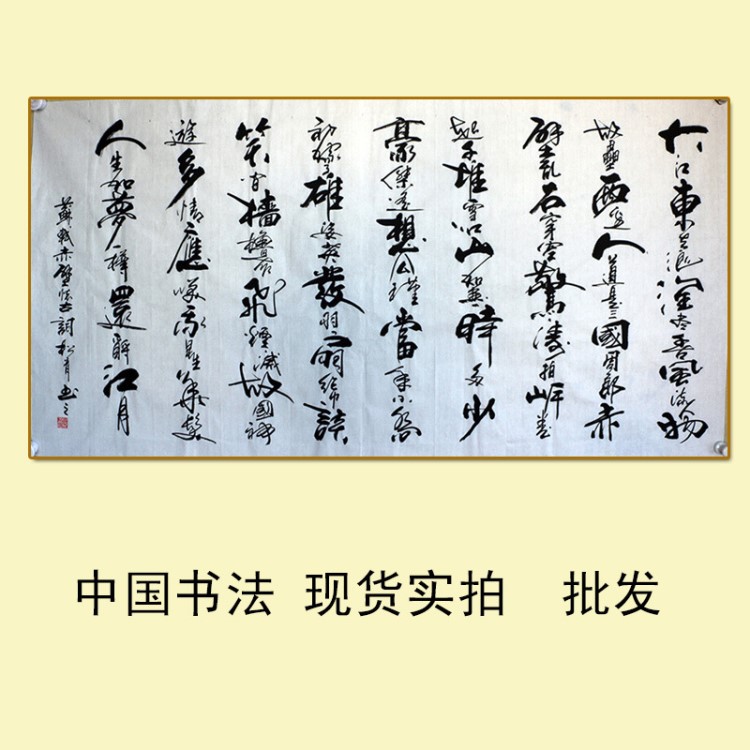 大江東去浪淘尽千古風流人物
故壘西邊人道是三國周郎赤
壁乱石穿空驚濤拍岸卷
起千堆雪江山如畫一時多少
豪傑遙想公瑾當年小喬
初嫁了雄姿英發羽扇綸巾談
笑间檣櫓灰飛煙滅故國神
遊多情應笑我早生華髮
人生如夢一樽還酹江月
蘇軾赤壁懷古詞松青書之
中国书法 现货实拍 批发